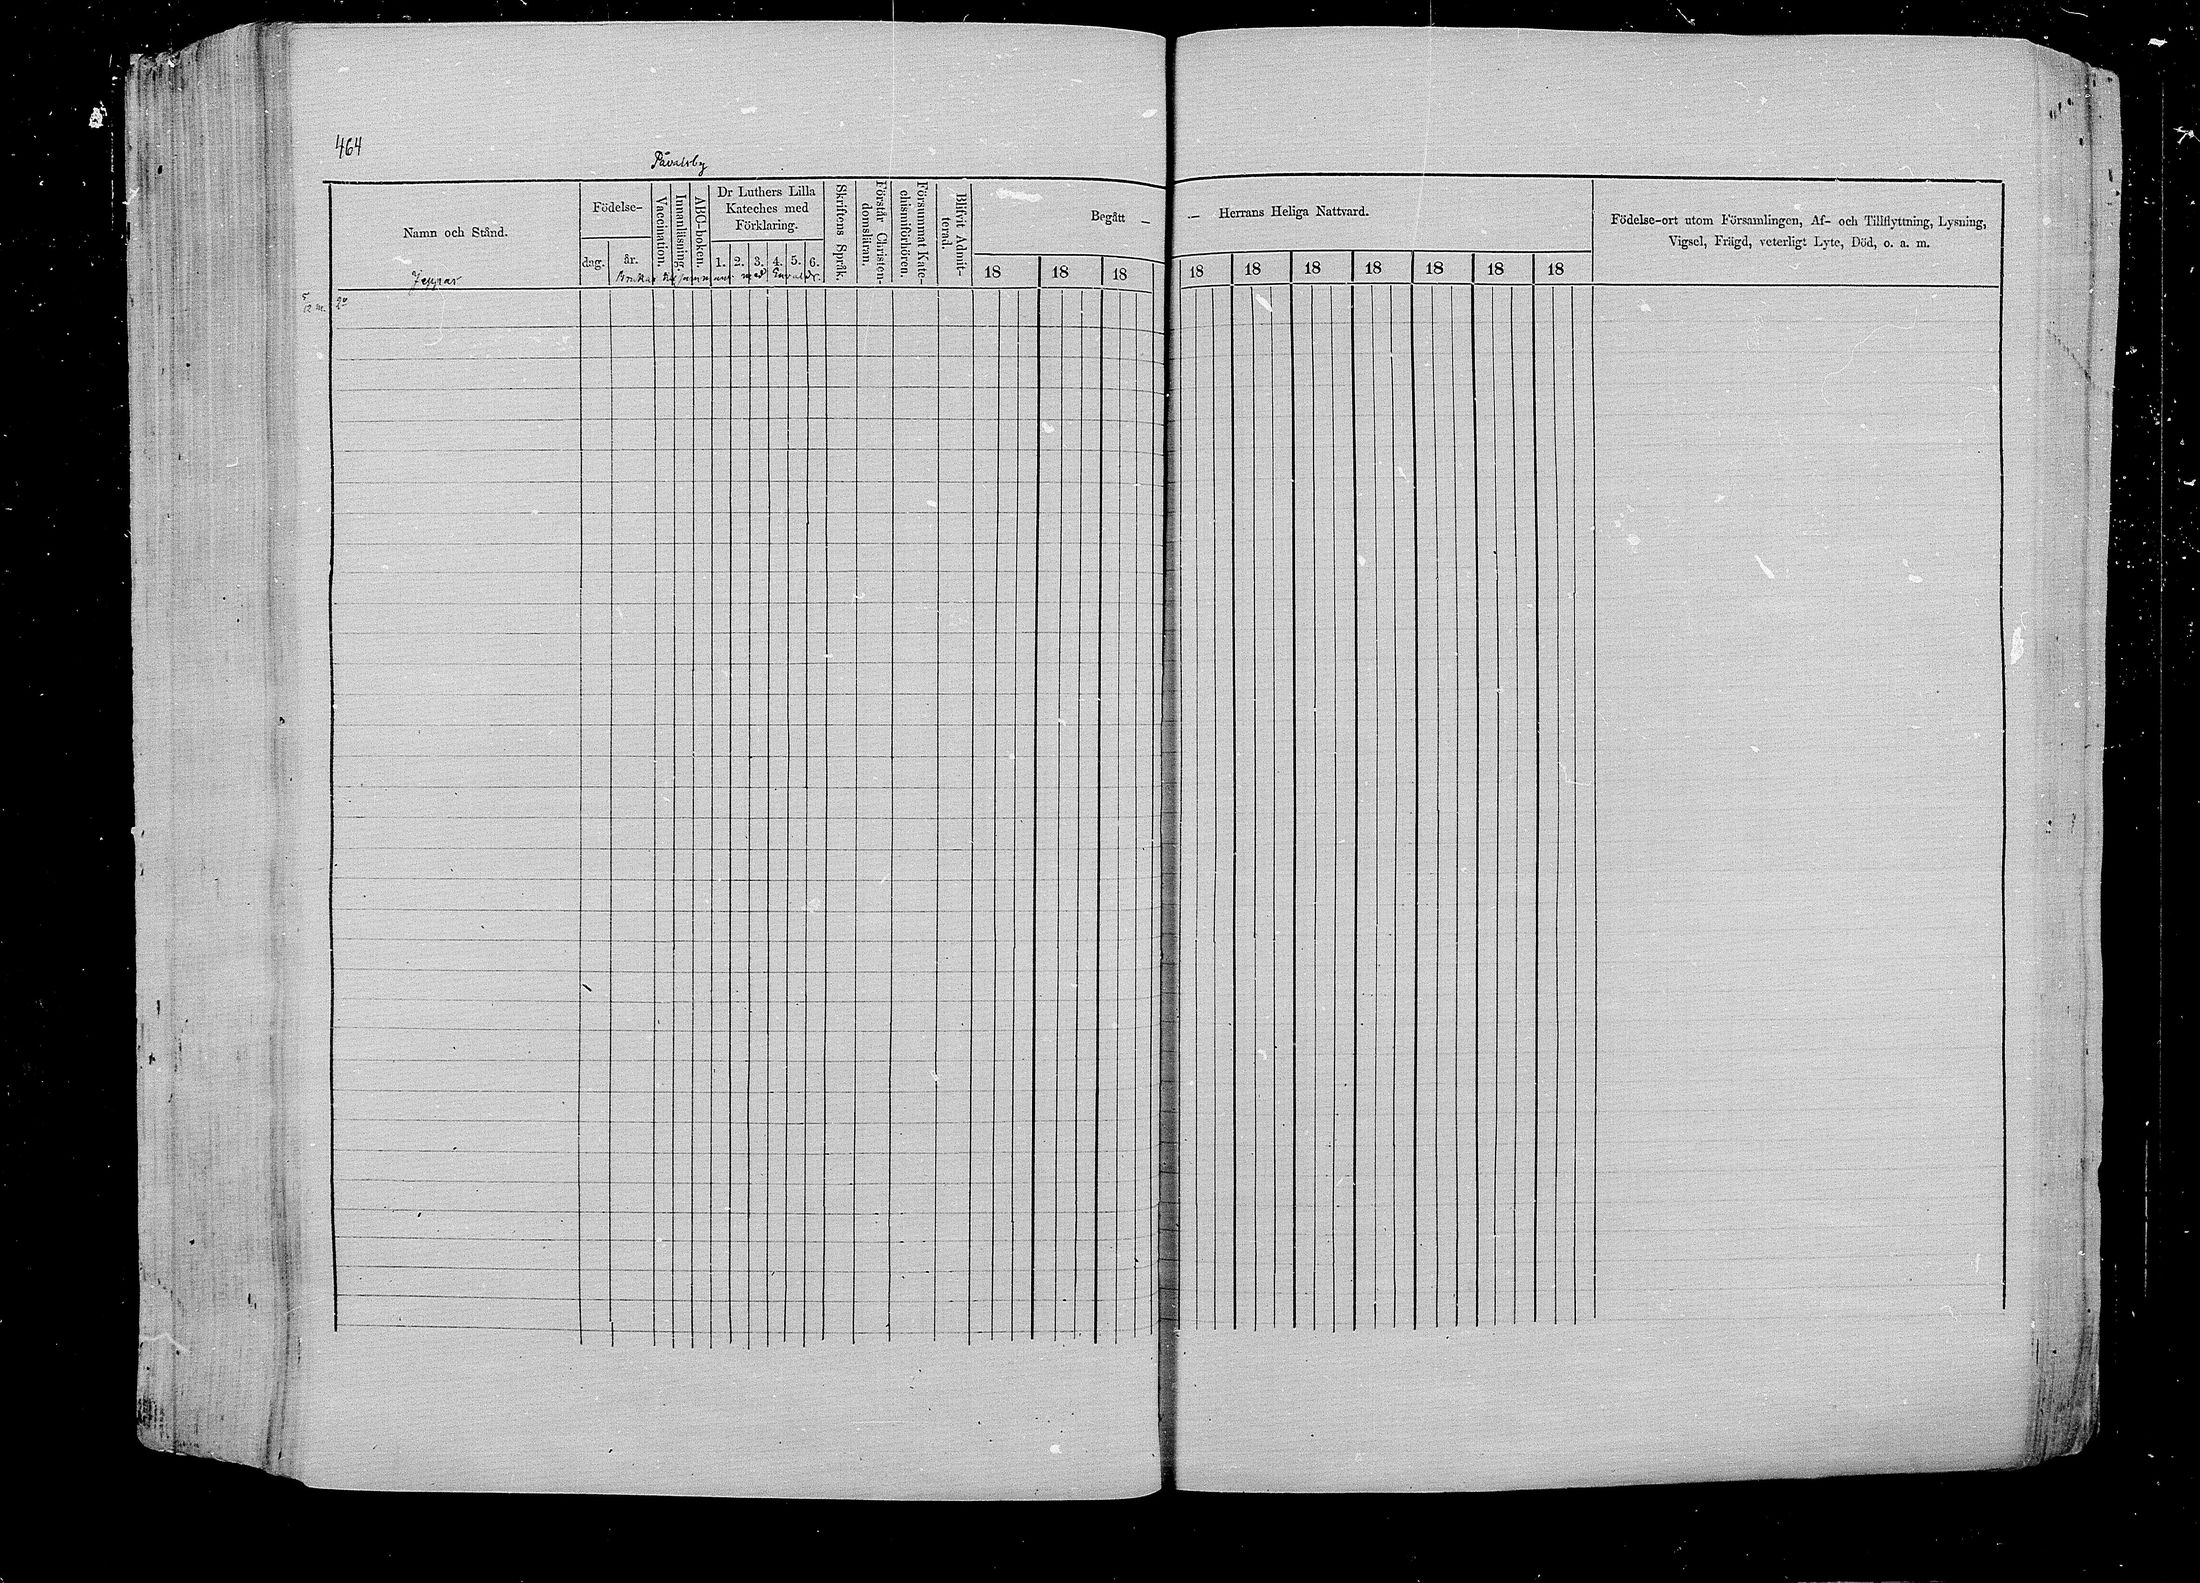 464
Påvalsby
Namn och Stånd.
Födelse-
dag.
år.
Vaccination.
Innanläsning.
ABC-boken.
Dr Luthers Lilla
Kateches med
Förklaring.
1. 2. 3. 4. 5. 6.
Skriftens Språk.
Förstår Christen-
domsläran.
Försummat Kate-
chismiförhören.
Blifvit Admit-
terad.
Begått —
18 18 18
— Herrans Heliga Nattvard.
18 18 18 18 18 18 18
Födelse-ort utom Församlingen, Af- och Tillflyttning, Lysning,
Vigsel, Frägd, veterligt Lyte, Död, o. a. m.
Jeppas
Brukas med
5/12 m.